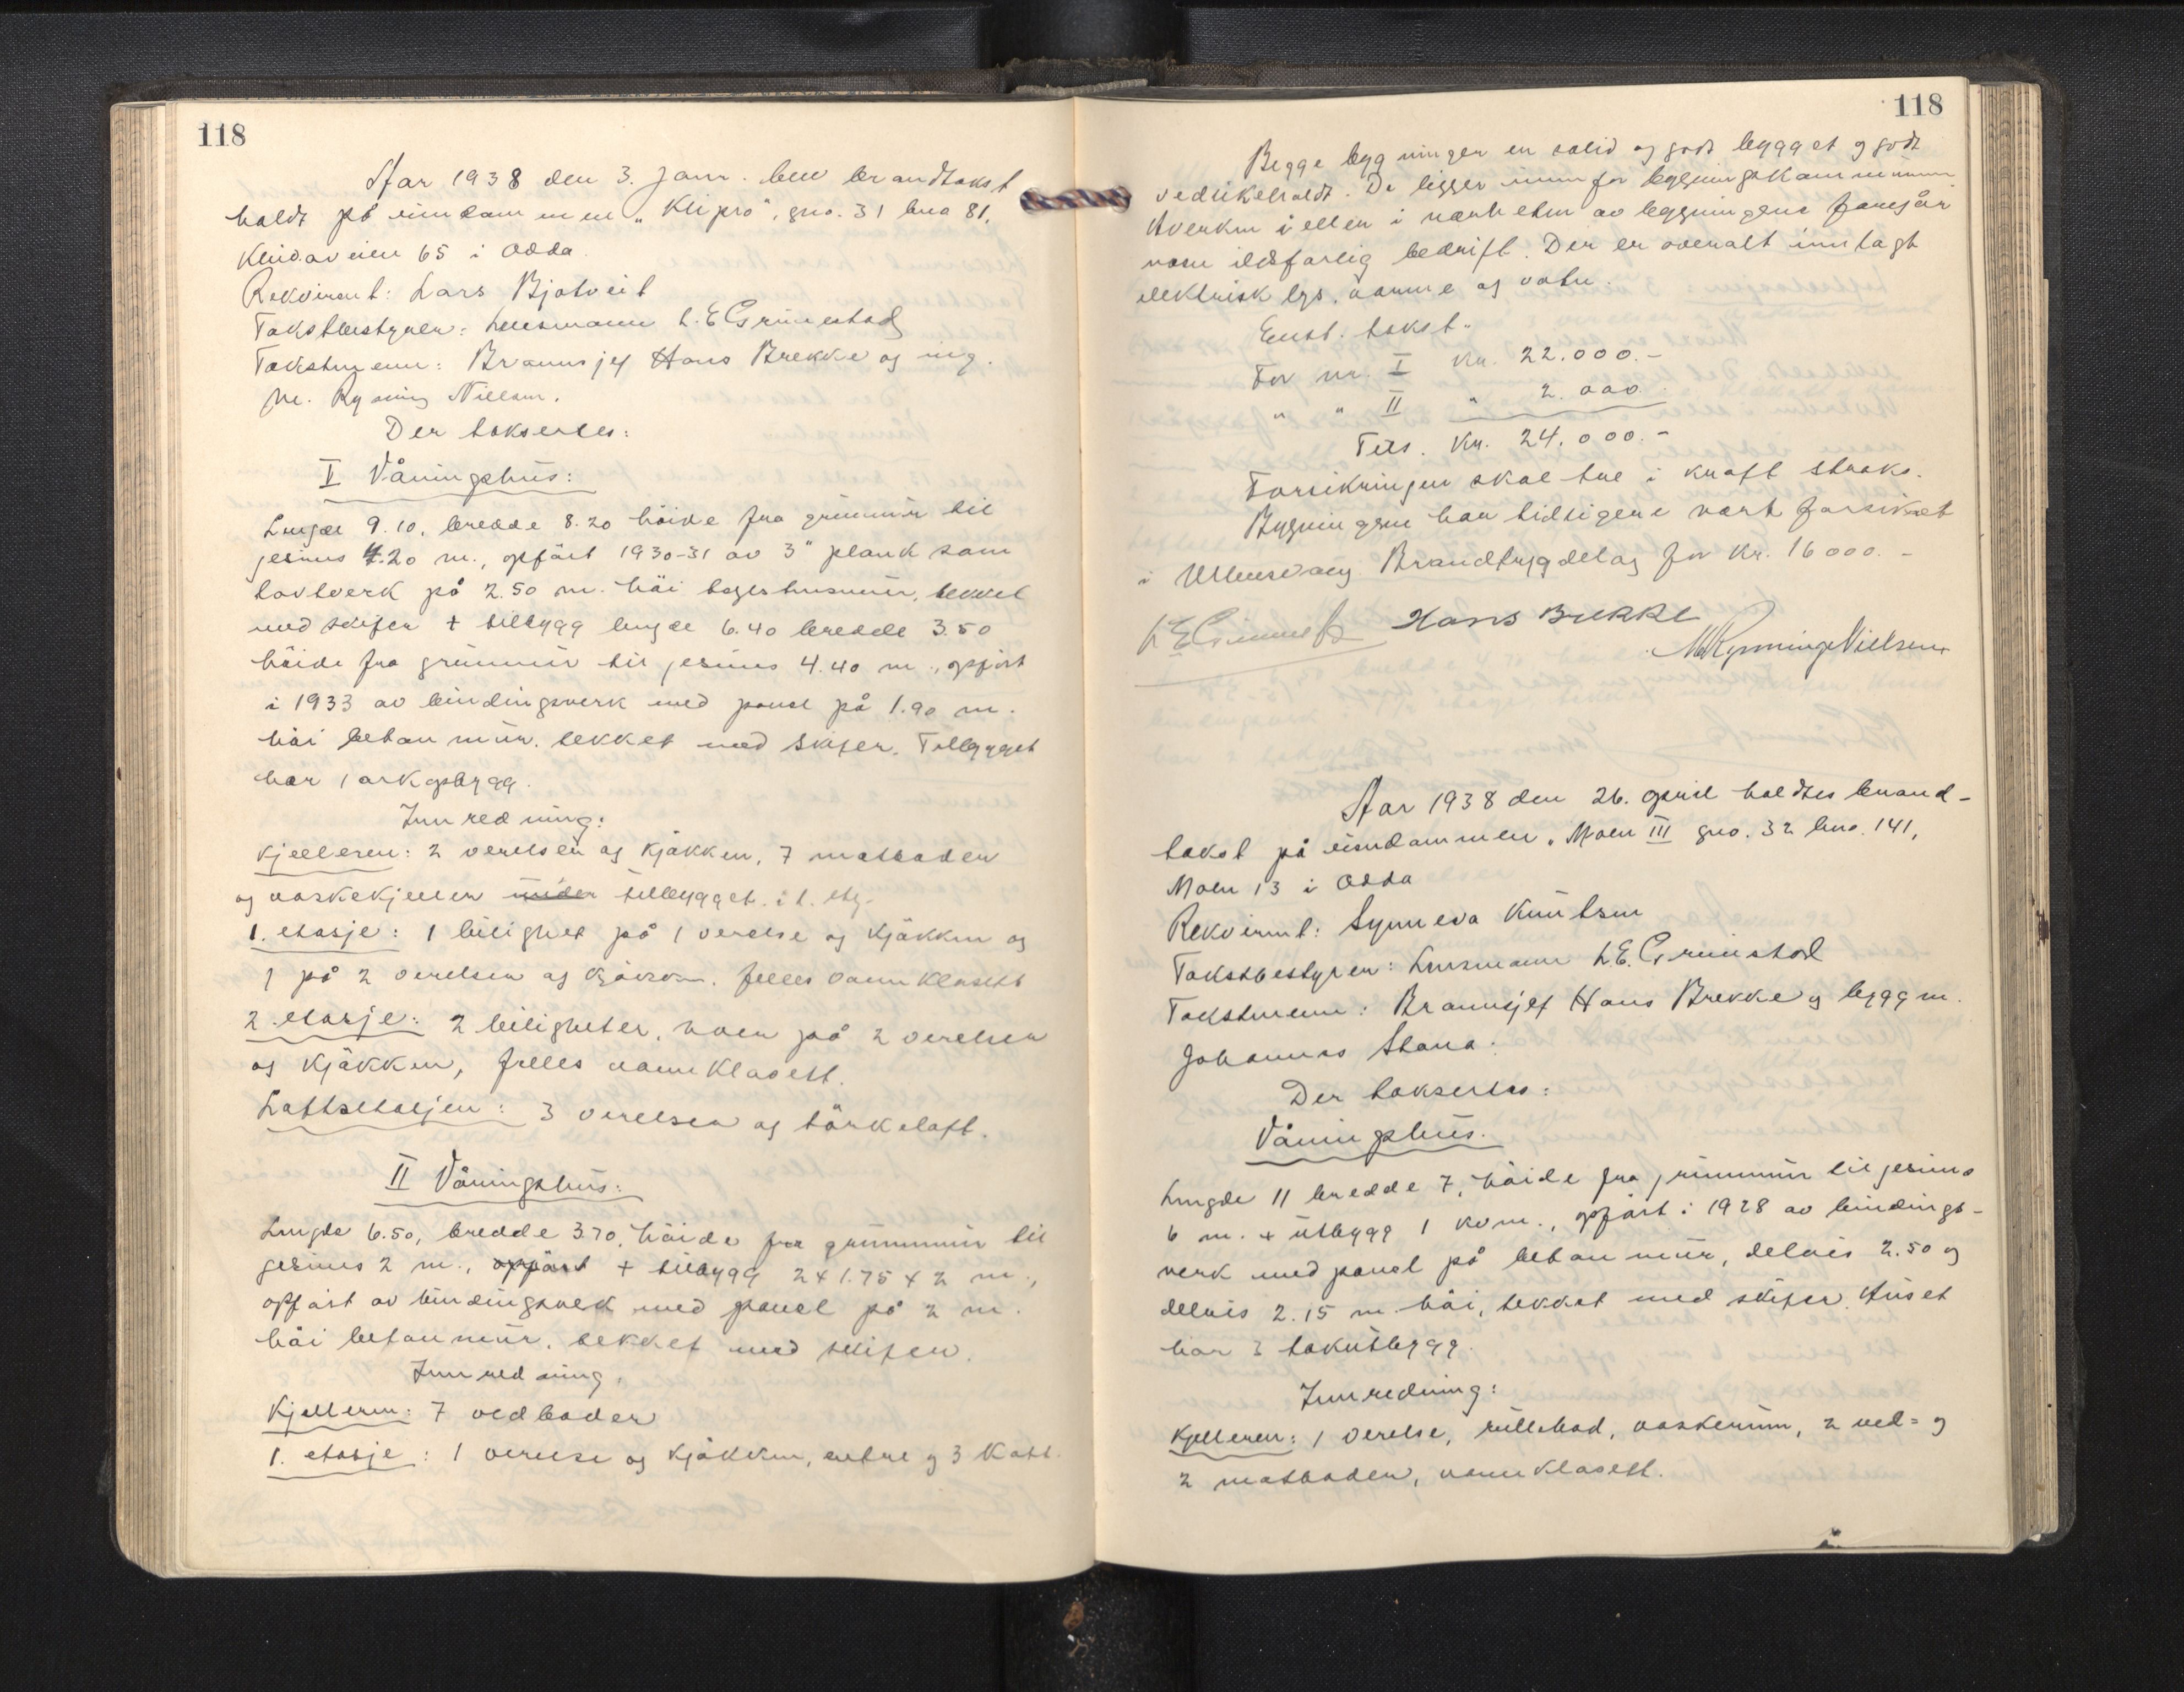 118
Aar 1938 den 3. Janr. blev brandtakst
holdt på eiendommen „Klipro", gno. 31 bno 81,
65 i Odda
Rekvirent: Lars Bjotveit
Takstbestyrer: Lensmann L. E Grimestad
Takstmenn: Brannsjef Hans Brekke og ing.
M. Ryning Nielsen.
Der takseres:
I Våningshus:
Lengde 9.10, bredde 8.20 höide fra grunmur til
gesims 4.20 m., opfört 1930-31 av 3" plank som
tovlverk på 2.50 m. höi mur, tekket
med skifer + tilbygg lengde 6.40 bredde 3.50
höide fra grunmur til gesims 4.40 m., opfört
i 1933 av bindingsverk med panel på 1.90 m.
höi betonmur. tekket med skifer. Tilbygget
har 1 arkopbygg.
Innredning:
Kjelleren: 2 verelser og kjökken, 7 matboder
og vaskekjeller under tilbygget. i 1. etg.
1. etasje: 1 leilighet på 1 verelse og kjökken og
1 på 2 verelser og kjökken. felles vannklosett
2. etasje: 2 leiligheter, hver på 2 verelser
og kjökken, felles vannklosett.
Loftsetasjen: 3 verelser og törkeloft.
II Våningshus:
Lengde 6.50, bredde 3.70, höide fra grunmur til
gesims 2 m., oppört + tilbygg 2 x 1.75 x 2 m.,
opfört av bindingsverk med panel på 2 m.
höi betonmur. tekket med skifer.
Innredning.
Kjelleren: 7 vedboder
1. etasje: 1 verelse og kjökken, entre og 3 kott.
118
Begge bygninger er solid og godt bygget og godt
vedlikeholdt. De ligger innenfor bygningskommunen
Hverken i eller i nærheten av bygningene foregår
noen ildsfarlig bedrift. Der er overalt inntagt
elektrisk lys. varme og vatn.
Enst. takst.
For nr. I kr. 22.000.-
" " II " 2.000.
Tils. Kr. 24.000.-
Forsikringen skal tre i kraft straks.
Bygningene har tidligere vært forsikret
i Ullensvang Brandtrygdelag for kr. 16000.-
L E Grimestad Hans Brekke
M Rynning Nielsen
Aar 1938 den 26. april holdtes brand-
takst på eiendommen „Moen III gno. 32 bno. 141,
Moen 13 i Odda
Rekvirent: Synneva Knutsen
Takstbestyrer: Lensmann L.E. Grimestad
Takstmenn: Brannsjef Hans Brekke og byggm.
Johannes Stana.
Der takseres:
Våningshus.
Lengde 11 bredde 7, höide fra grunmur til gesims
6 m. + utbygg 1 kvm., opfört i 1928 av bindings-
verk med panel på betonmur, delvis 2.50 og
delvis 2.15 m. höi, tekket med skifer. Huset
har 3 takutbygg.
Innredning:
Kjelleren: 1 verelse, rullebod, vaskerum, 2 ved- og
2 matboder, vannklosett.